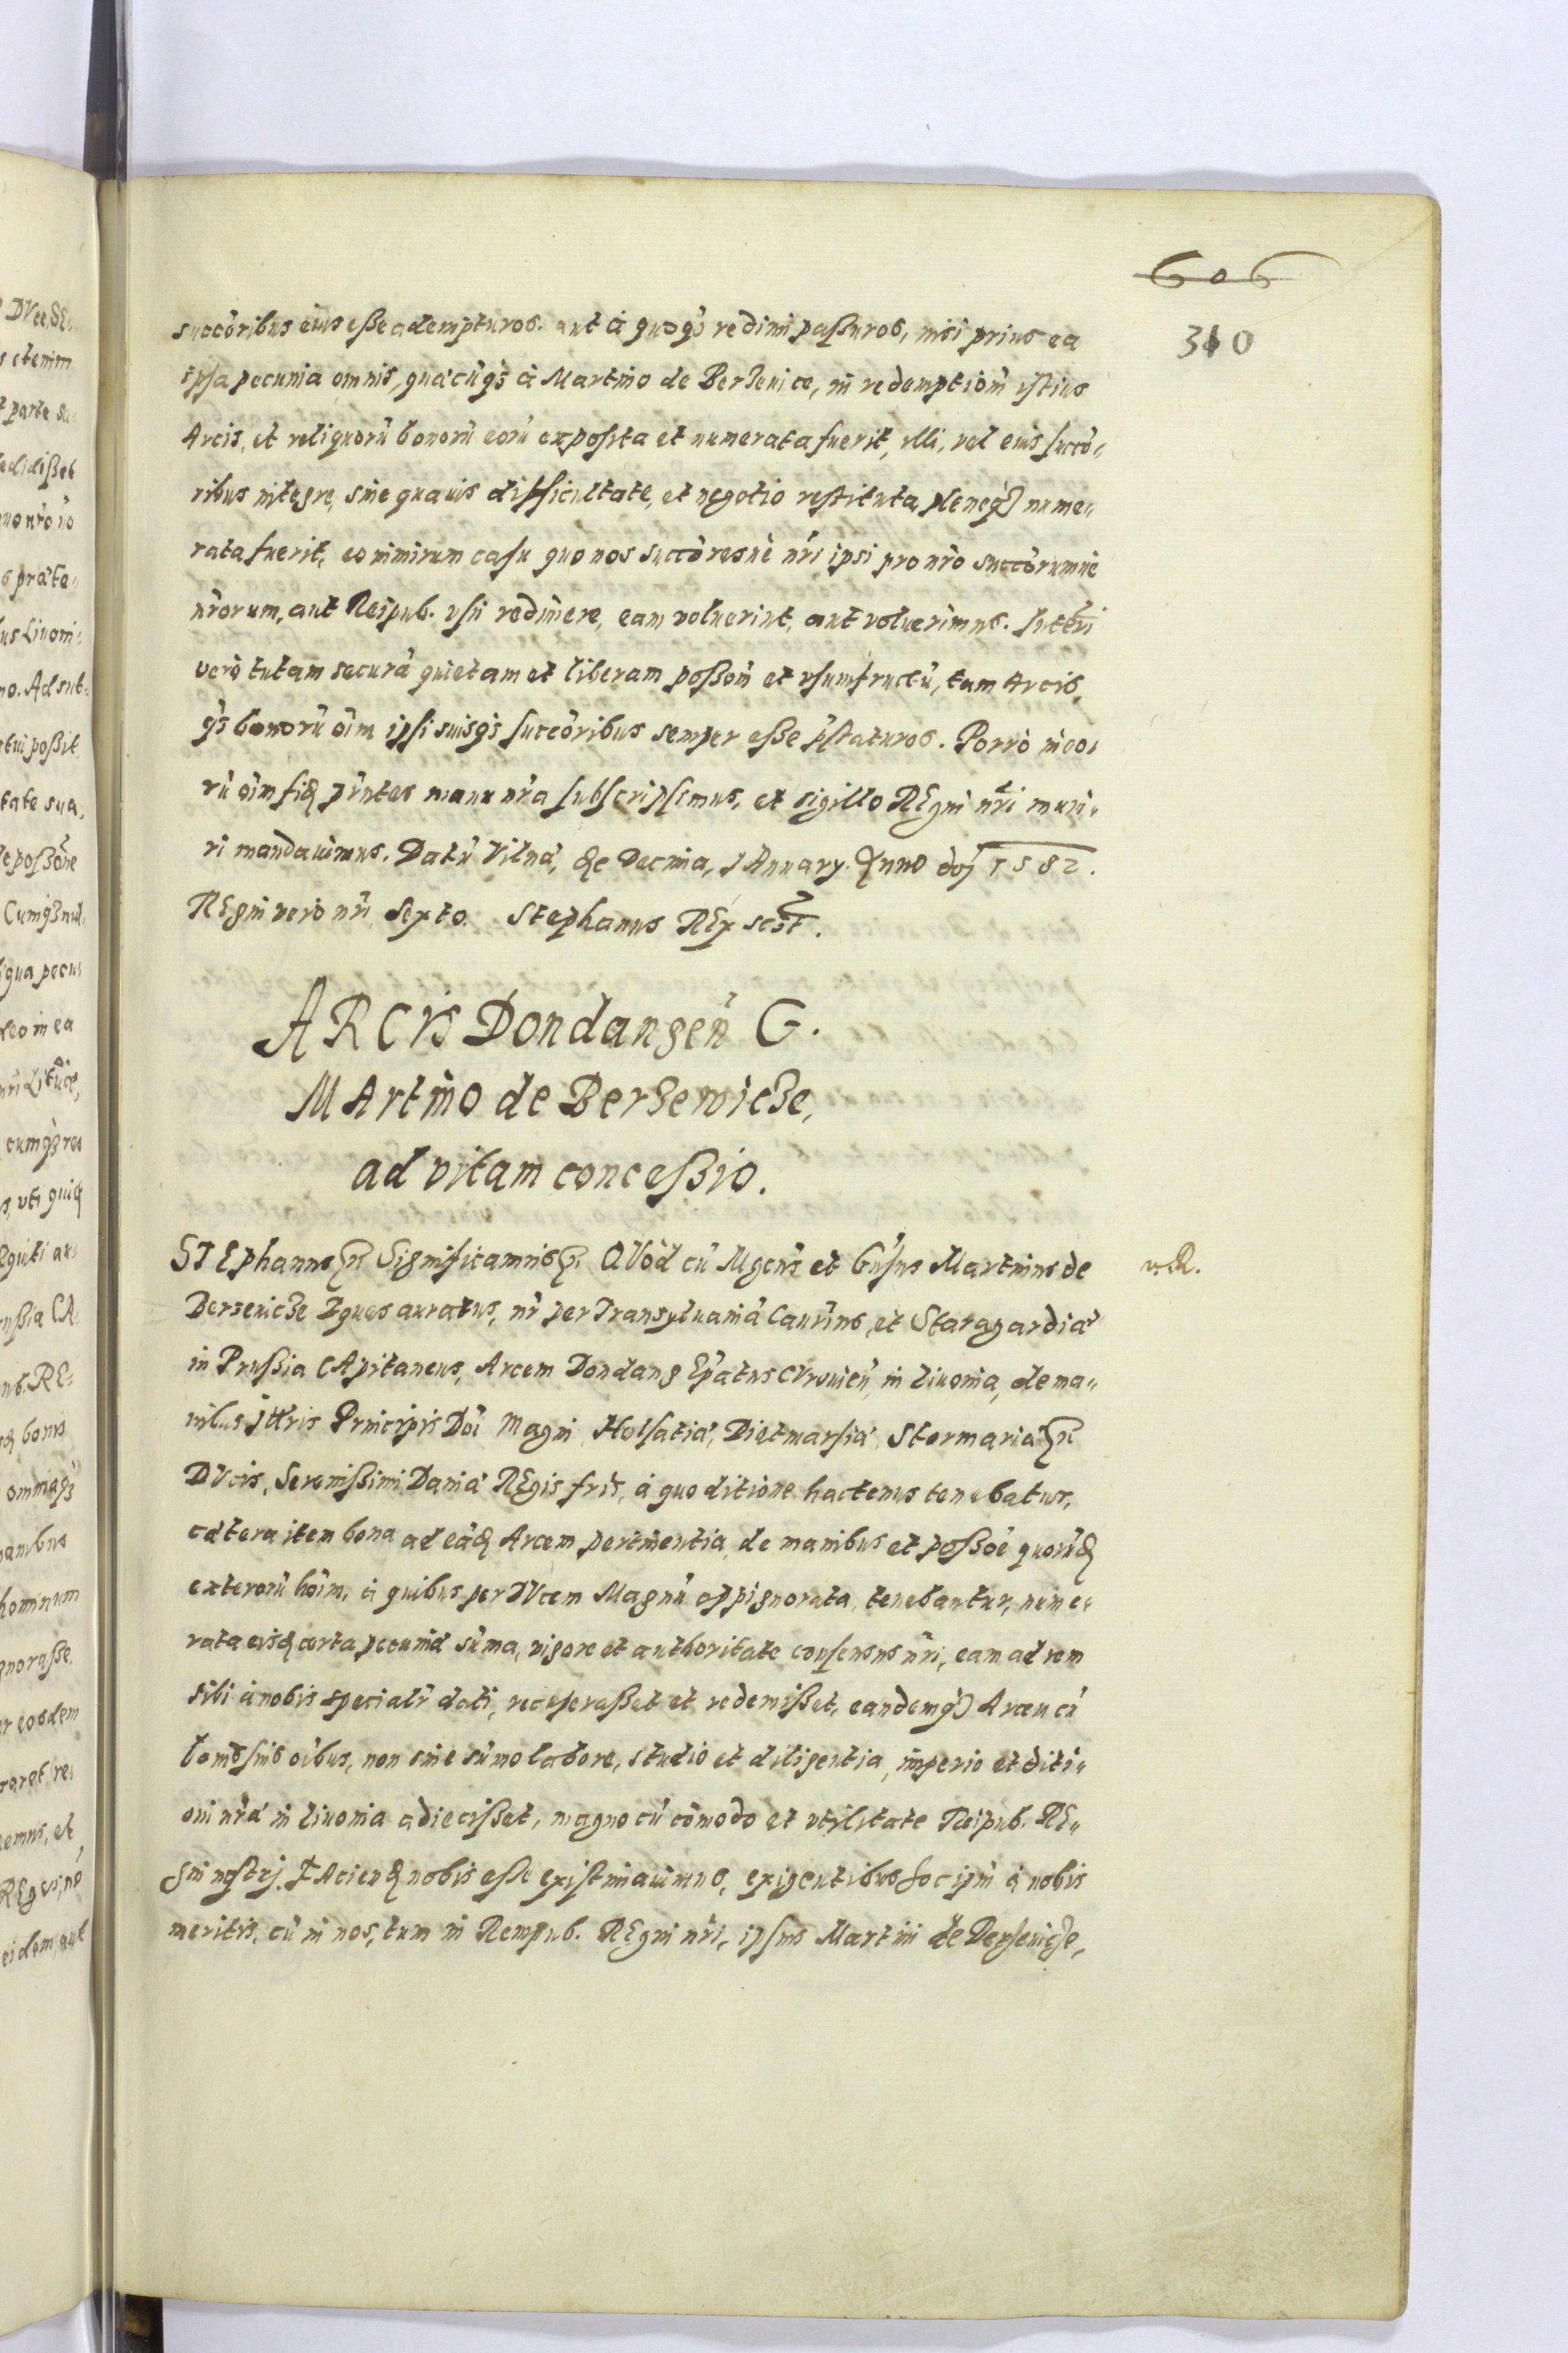 606
310
succōribus eius eße adempturos. aut à quoq̃ redimi paßuros, nisi prius ea
ipsa pecunia omnis, quæcūq̃ à Martino de Berseuice, in redemptiōm istius
Arcis, et reliquorū bonorū eorū exposita et numerata fuerit, illi, vel eius succō„
ribus integre, sine quauis difficultate, et negotio restituta pleneq̃ nume„
rata fuerit, eo nimirum casu quo nos succōresuè nr̃i ipsi pro nr̃o succōrumuè
nr̃orum, aut Reipub. vsu redimere, eam voluerint, aut voluerimus. Intr̃i
verò tutam securā quietam et liberam poßōm et vsumfructū, tam Arcis,
q̃ bonorū oīm ipsi suisq̃ succōribus semper eße p̃staturos. Porrò in eo„
rū oīm fid̃ p̃ntes manu nr̃a subscripsimus, et sigillo REgni nr̃i muni„
ri mandauimus. Datū Vilnæ, die Decima, IAnuarij Anno doj 1582.
REgni vero nr̃i Sexto. Stephanus REx scst̃.
ARCis Dondangen̄ G.
MArtino de Berzewicze,
ad vitam conceßio.
STEphanus Significamus QVòd cū Mgcus et Gn̄sus Martinus de
v. R.
Berzeuicze Eques auratus, nr̃ per Transyluaniā Canr̃ius, et Staragardiæ
in Prußia CApitaneus, Arcem Dondang Ep̃atus CUrouien̄, in Liuonia, de ma„
nibus Ill̃ris Principis Dn̄i Magni Holsatiæ, Dietmarsiæ, Stormariæ
DVcis, Serenißimi Daniæ REgis fris̃, à quo ditione hactenus tenebatur,
cætera item bona ad eād̃ Arcem pertinentia, de manibus et poßōe quorūd̃
exterorū hōīm, à quibus per DVcem Magnū oppignorata tenebantur, nume„
rata eisd̃ certa pecuniæ sūma, vigore et authoritate consensus nr̃i, eam ad rem
sibi à nobis specialr̃ dati, recuperaßet et redemißet, eandemq̃ Arcem cū
bonis suis oībus, non sine sūmo labore, studio et diligentia, imperio et diti„
oni nr̃æ in Liuonia adiecißet, magno cū cōmodo et vtilitate Reipub. RE„
gni nostrj. FAciend̃ nobis eße existimauimus, exigentibus hoc ip̄m à nobis
meritis, cū in nos, tum in Rempub. REgni nr̃i, ipsius Martini de Berseuicze,